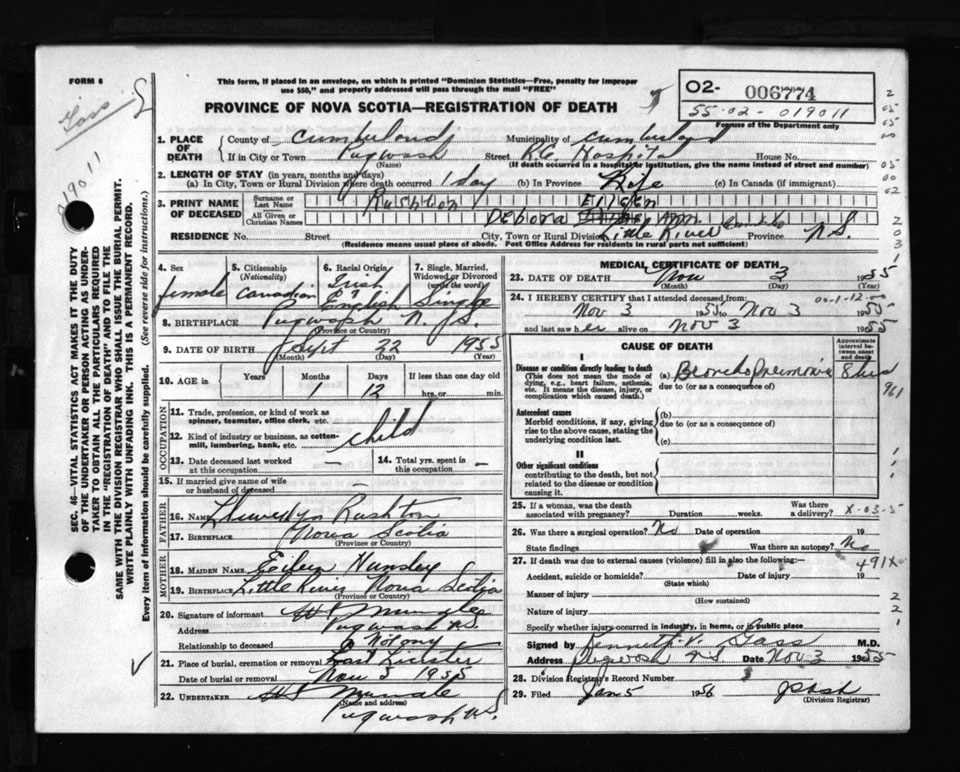 FORM 6
This form, if placed in an envelope, on which is printed "Dominion Statistics—Free, penalty for improper
use $50," and properly addressed will pass through the mail "FREE"
PROVINCE OF NOVA SCOTIA—REGISTRATION OF DEATH
02- 006774
55-02-019011
For use of the Department only
Gass
019011
SEC. 46—VITAL STATISTICS ACT MAKES IT THE DUTY
OF THE UNDERTAKER OR PERSON ACTING AS UNDER-
TAKER TO OBTAIN ALL THE PARTICULARS REQUIRED
IN THE "REGISTRATION OF DEATH" AND TO FILE THE
SAME WITH THE DIVISION REGISTRAR WHO SHALL ISSUE THE BURIAL PERMIT.
WRITE PLAINLY WITH UNFADING INK. THIS IS A PERMANENT RECORD.
Every item of information should be carefully supplied. (See reverse side for instructions.)
1. PLACE OF DEATH
County of Cumberland Municipality of Cumberland
If in City or Town Pugwash Street R.C. Hospital House No.
(Name) (If death occurred in a hospital or institution, give the name instead of street and number)
2. LENGTH OF STAY (in years, months and days)
(a) In City, Town or Rural Division where death occurred 1 day (b) In Province Life (c) In Canada (if immigrant)
3. PRINT NAME OF DECEASED
Surname or Last Name Rushton Eileen
All Given or Christian Names Debora Ann
RESIDENCE No. Street City, Town or Rural Division Little River Cumb Co Province N.S.
(Residence means usual place of abode. Post Office Address for residents in rural parts not sufficient)
4. Sex female
5. Citizenship (Nationality) Canadian
6. Racial Origin Irish & English
7. Single, Married, Widowed or Divorced (write the word) Single
8. BIRTHPLACE Pugwash N.S.
(Province or Country)
9. DATE OF BIRTH Sept 22 1955
(Month) (Day) (Year)
10. AGE in Years Months Days If less than one day old
1 12 hrs. or min.
OCCUPATION
11. Trade, profession, or kind of work as
spinner, teamster, office clerk, etc.
12. Kind of industry or business, as cotton-
mill, lumbering, bank, etc. child
13. Date deceased last worked
at this occupation —
14. Total yrs. spent in
this occupation —
15. If married give name of wife
or husband of deceased —
FATHER
16. NAME Llewellyn Rushton
17. BIRTHPLACE Nova Scotia
(Province or Country)
MOTHER
18. MAIDEN NAME Eileen Hunsley
19. BIRTHPLACE Little River Nova Scotia
(Province or Country)
20. Signature of informant
Address Pugwash N.S.
Relationship to deceased
21. Place of burial, cremation or removal East
Date of burial or removal Nov 5 1955
22. UNDERTAKER
(Name and address)
Pugwash N.S.
MEDICAL CERTIFICATE OF DEATH
23. DATE OF DEATH Nov 3 1955
(Month) (Day)
24. I HEREBY CERTIFY that I attended deceased from:
00-1-12-00
Nov 3 1955 to Nov 3 1955
and last saw her alive on Nov 3 1955
CAUSE OF DEATH
Approximate interval between onset and death
I
Disease or condition directly leading to death
(This does not mean the mode of dying, e.g., heart failure, asthenia, etc. It means the disease, injury, or complication which caused death.)
(a) Broncho Pneumonia
due to (or as a consequence of)
Antecedent causes
Morbid conditions, if any, giving rise to the above cause, stating the underlying condition last.
(b)
due to (or as a consequence of)
(c)
II
Other significant conditions
contributing to the death, but not related to the disease or condition causing it.
25. If a woman, was the death
associated with pregnancy? Duration weeks. Was there a delivery? X-03-5
26. Was there a surgical operation? No Date of operation 19
State findings Was there an autopsy? No
27. If death was due to external causes (violence) fill in also the following: 491X
Accident, suicide or homicide? Date of injury 19
(State which)
Manner of injury
(How sustained)
Nature of injury
Specify whether injury occurred in industry, in home, or in public place
Signed by Kenneth V. Gass M.D.
Address Pugwash N.S. Date Nov 3 1955
28. Division Registrar's Record Number
29. Filed Jan 5 1956
(Division Registrar)